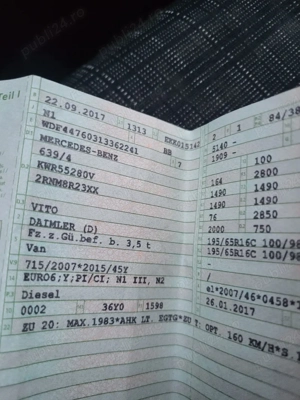 publi24.ro
Teil I
22.09.2017
1313
N1
WDF44760313362241
7
MERCEDES-BENZ
639/4
KWR55280V
2RNM8R23XX
VITO
DAIMLER (D)
Fz.z.Gü.bef. b. 3,5 t
Van
715/2007*2015/45Y
EURO6;Y;PI/CI; N1 III, N2
Diesel
0002 36Y0 1598
ZU 20: MAX.1983*AHK LT. EGTG*ZU T: OPT. 160 KM/H*S
2 1 84/38
5140 -
1909 - 100
164 2800
1490 1490
1490 1490
76 2850
2000 750
195/65R16C 100/98
195/65R16C 100/98
-
/
e1*2007/46*0458*1
26.01.2017